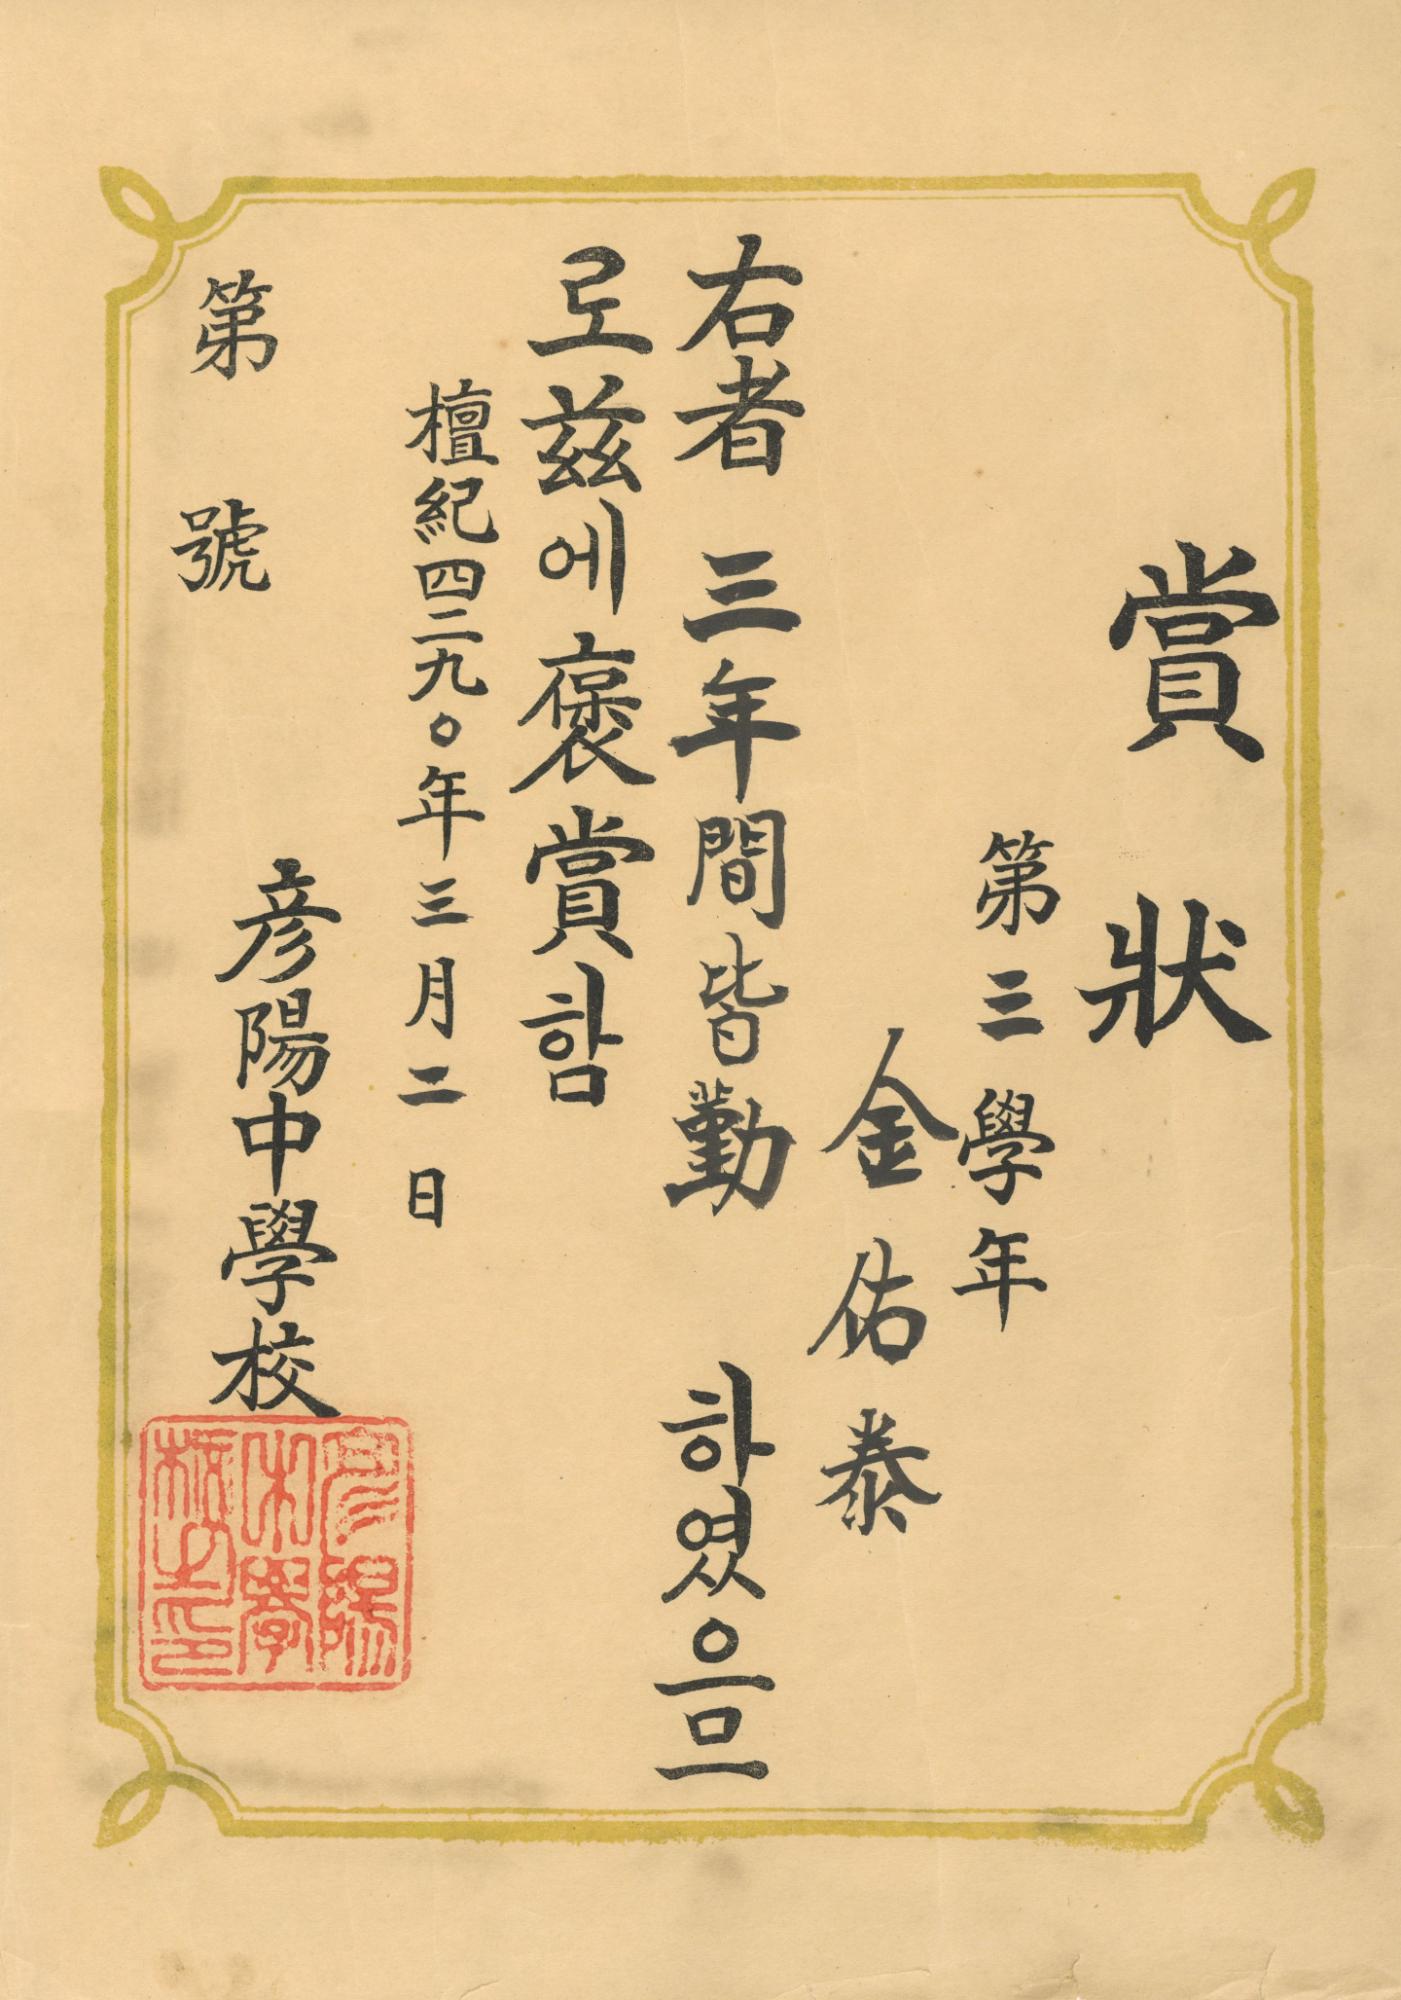 賞狀
第三學年
金佑泰
右者 三年間皆勤 하였으므
로 玆에 褒賞함
檀紀四二九〇年三月二日
彦陽中學校
第 號
彦陽
中學
校之印